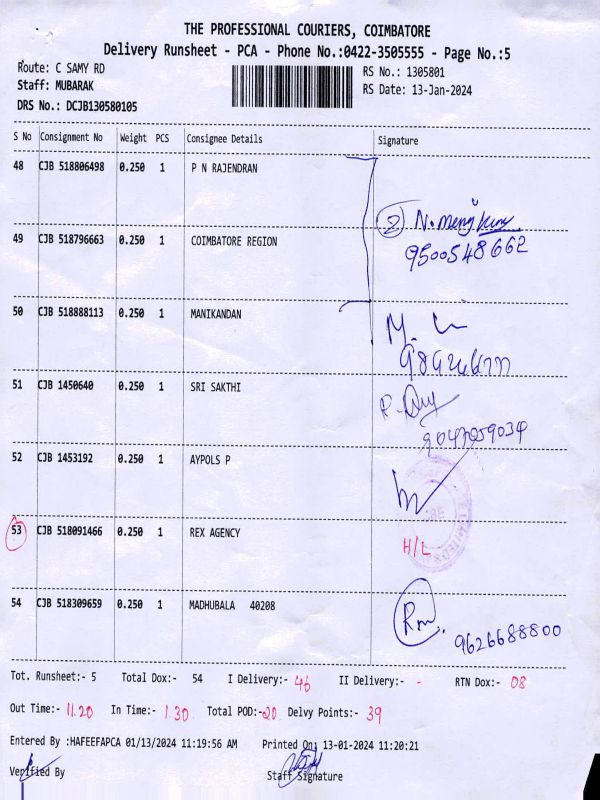 THE PROFESSIONAL COURIERS, COIMBATORE
Delivery Runsheet - PCA - Phone No.:0422-3505555 - Page No.:5
Route: C SAMY RD
RS No.: 1305801
Staff: MUBARAK
RS Date: 13-Jan-2024
DRS No.: DCJB130580105
S No Consignment No Weight PCS Consignee Details Signature
48 CJB 518806498 0.250 1 P N RAJENDRAN
2
49 CJB 518796663 0.250 1 COIMBATORE REGION 9500548662
50 CJB 518888113 0.250 1 MANIKANDAN
51 CJB 1450640 0.250 1 SRI SAKTHI
52 CJB 1453192 0.250 1 AYPOLS P
53 CJB 518091466 0.250 1 REX AGENCY H/L
54 CJB 518309659 0.250 1 MADHUBALA 40208 Rm.
9626688800
Tot. Runsheet:- 5 Total Dox:- 54 I Delivery:- 46 II Delivery:- - RTN Dox:- 08
Out Time:- 11.20 In Time:- 1.30 Total POD:- 20 Delvy Points:- 39
Entered By :HAFEEFAPCA 01/13/2024 11:19:56 AM Printed On: 13-01-2024 11:20:21
Verified By Staff Signature